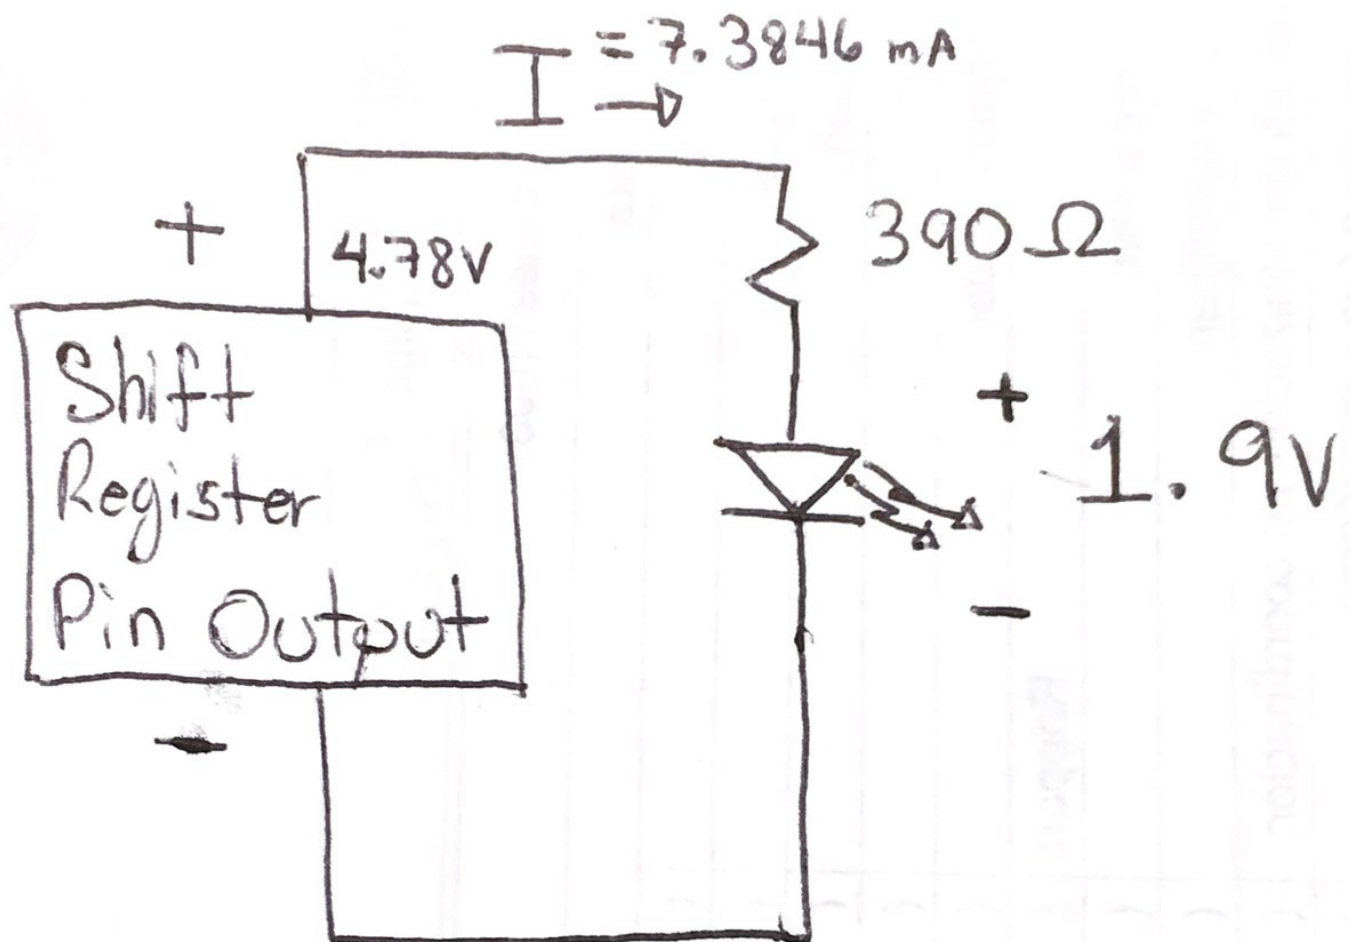 I = 7.3846 mA
+
4.78V
390 Ω
Shift
Register
Pin Output
+
1.9V
-
-